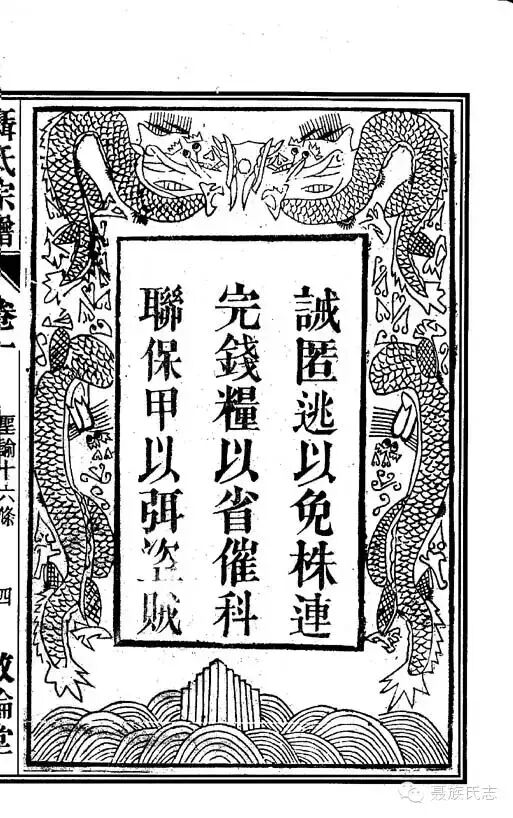 誡匿逃以免株連
完錢糧以省催科
聯保甲以弭盜賊
聶氏宗譜
卷一
聖諭十六條
四
敦倫堂
聂族氏志